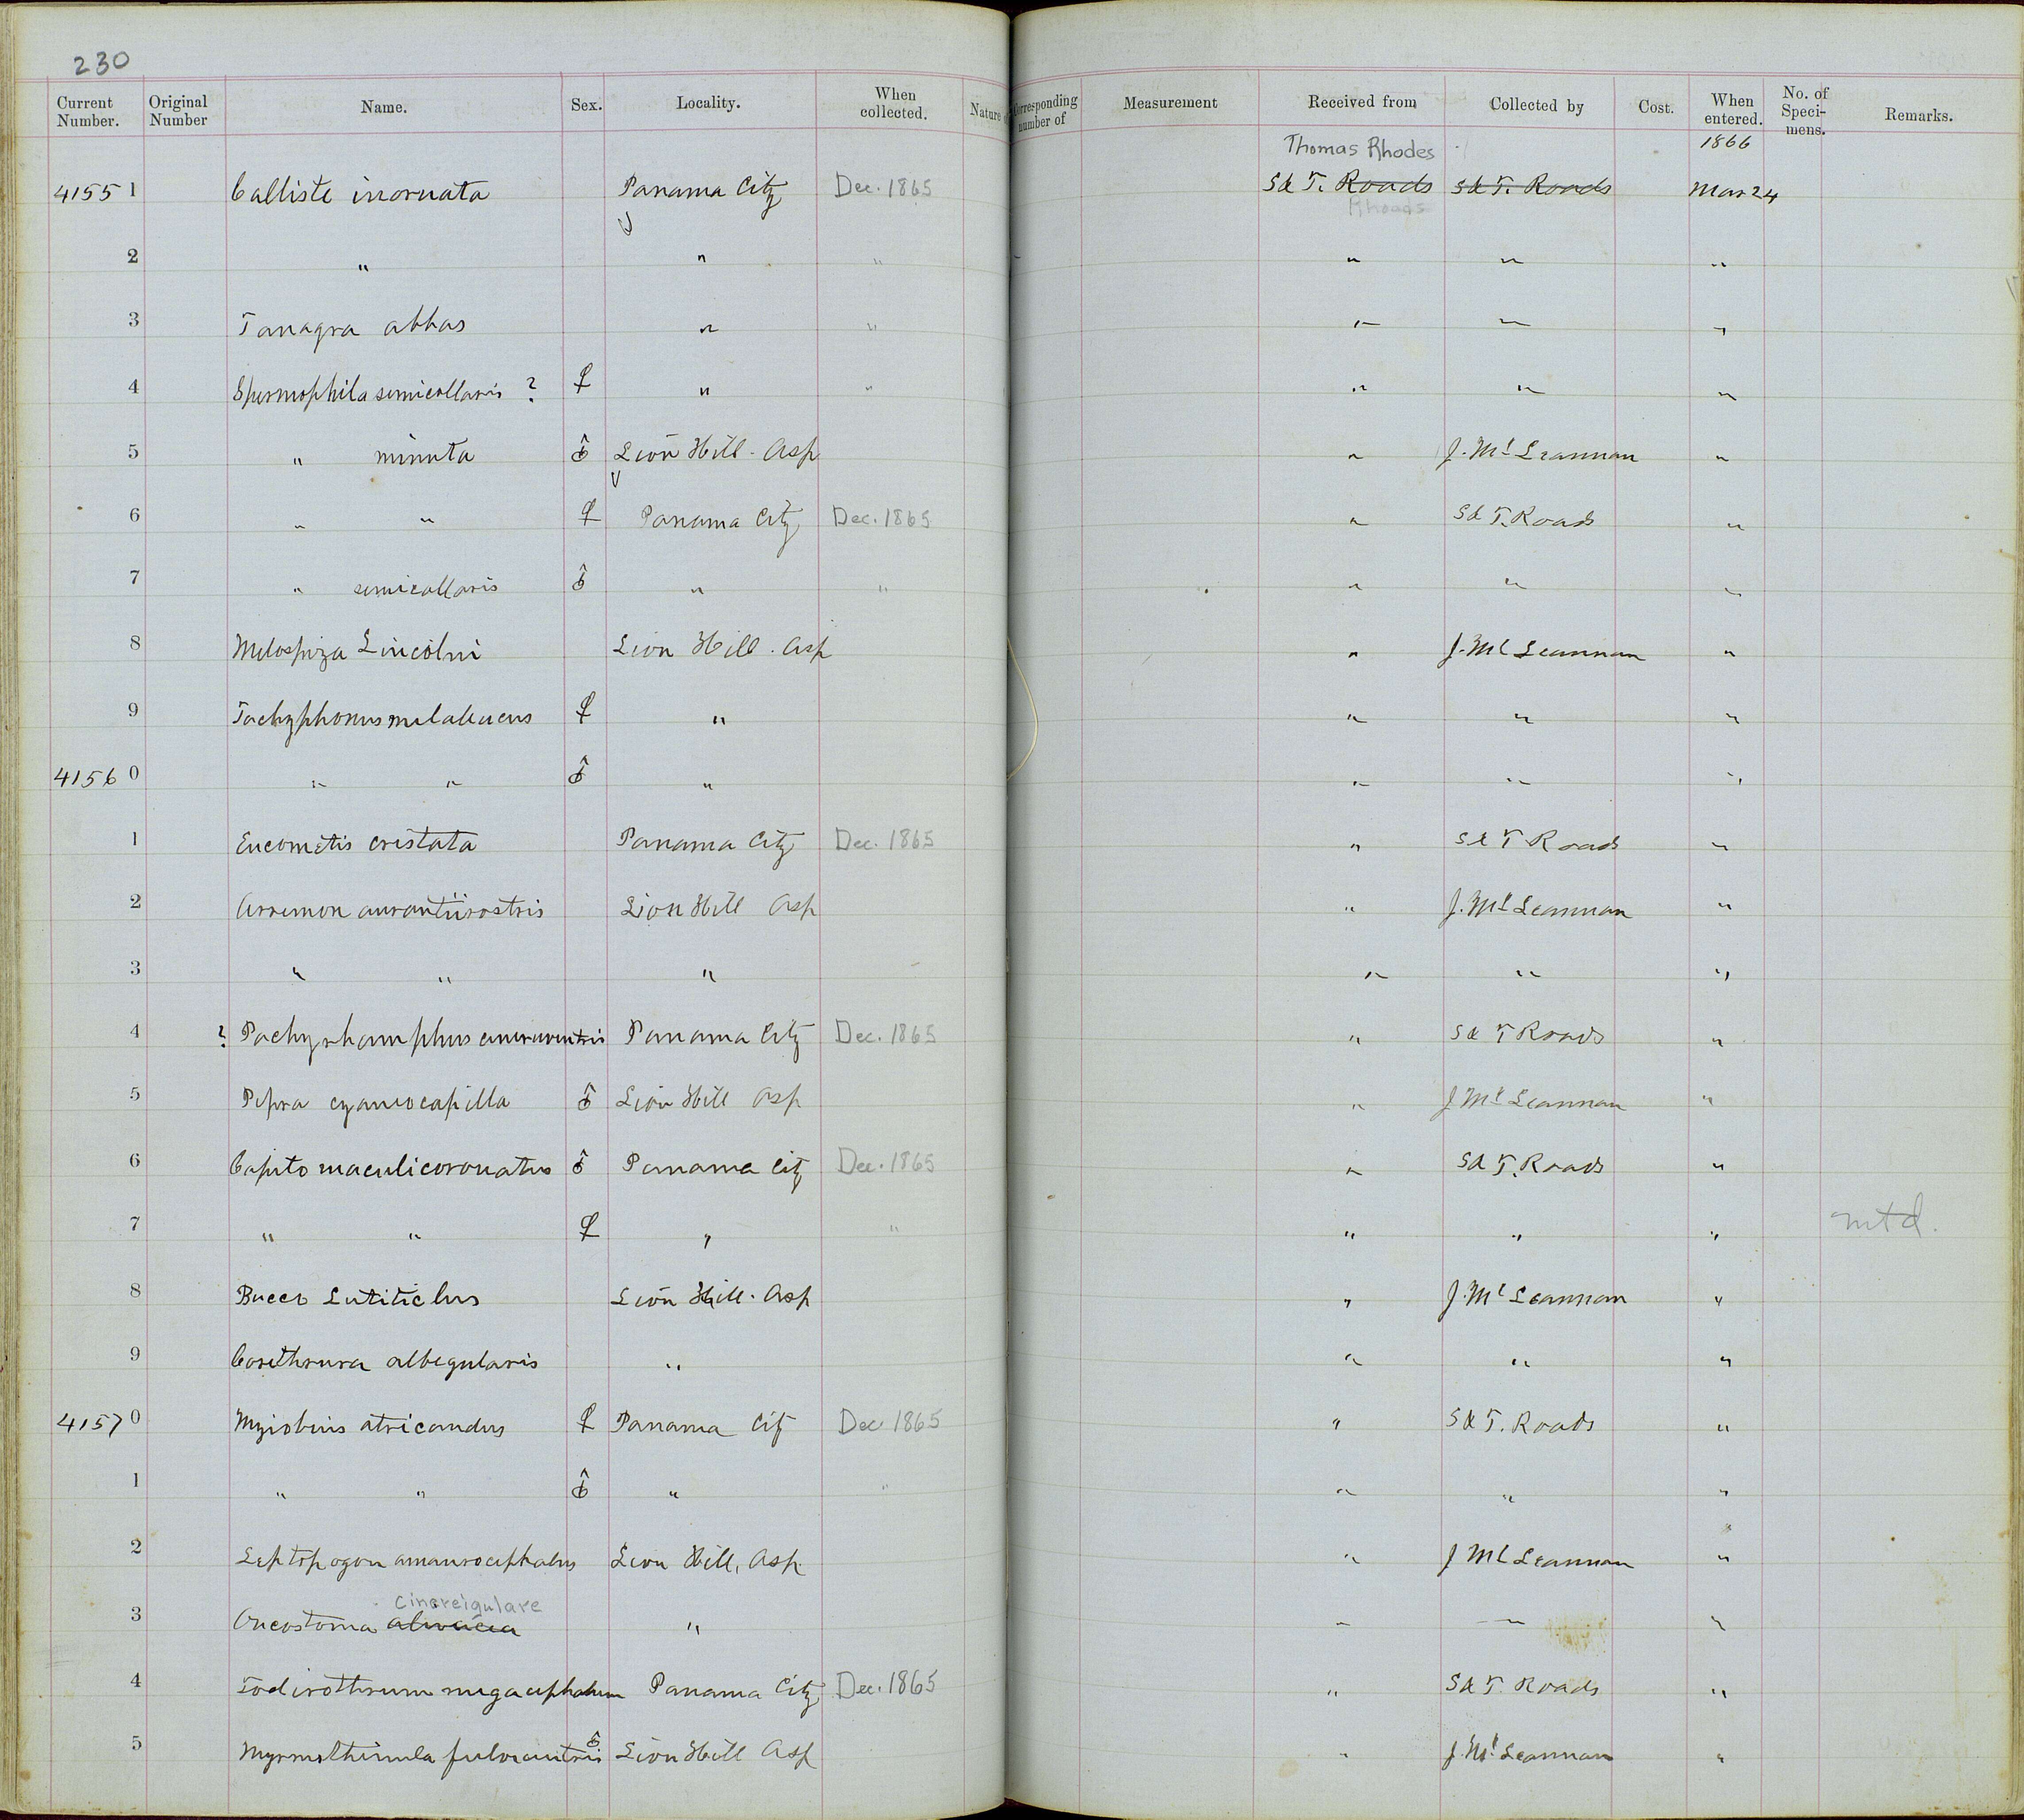 230
Current Number. Original Number Name. Sex. Locality. When collected. Nature Corresponding number of Measurement Received from Collected by Cost. When entered. No. of Specimens. Remarks.
Thomas Rhodes 1866
41551 Calliste inornata Panama City Dec. 1865 S & T. Roads S & T. Roads Mar 24
Rhoads
2 " " " " " "
3 Tanagra abbas " " " " "
4 Spermophila semicollaris ? ♀ " " " " "
5 " minuta ♂ Lion Hill - Asp " J. McLeannan "
6 " " ♀ Panama City Dec. 1865 " S & T. Roads "
7 " semicollaris ♂ " " " " "
8 Melospiza Lincolni Lion Hill . Asp " J. McLeannan "
9 Tachyphonus melaleucus ♀ " " " "
41560 " " ♂ " " " "
1 Eucometis cristata Panama City Dec. 1865 " S & T Roads "
2 Arremon aurantiirostris Lion Hill Asp " J. McLeannan "
3 " " " " " "
4 ? Pachyrhamphus cinereiventris Panama City Dec. 1865 " S & T Roads "
5 Pipra cyaneocapilla ♂ Lion Hill Asp " J McLeannan "
6 Capito maculicoronatus ♂ Panama City Dec. 1865 " S & T. Roads "
7 " " ♀ " " " " " mtd.
8 Bucco Lion Hill . Asp " J. McLeannan "
9 Corethrura albegularis " " " "
41570 Myiobius atricaudus ♀ Panama City Dec. 1865 " S & T. Roads "
1 " " ♂ " " " " "
2 Leptopogon amaurocephalus Lion Hill, Asp. " J McLeannan "
cinereigulare
3 Oncostoma olivacea " " " "
4 Todirothrum megacephalum Panama City Dec. 1865 " S & T. Roads "
5 Myrmothinula fulviventris ♂ Lion Hill Asp " J. McLeannan "